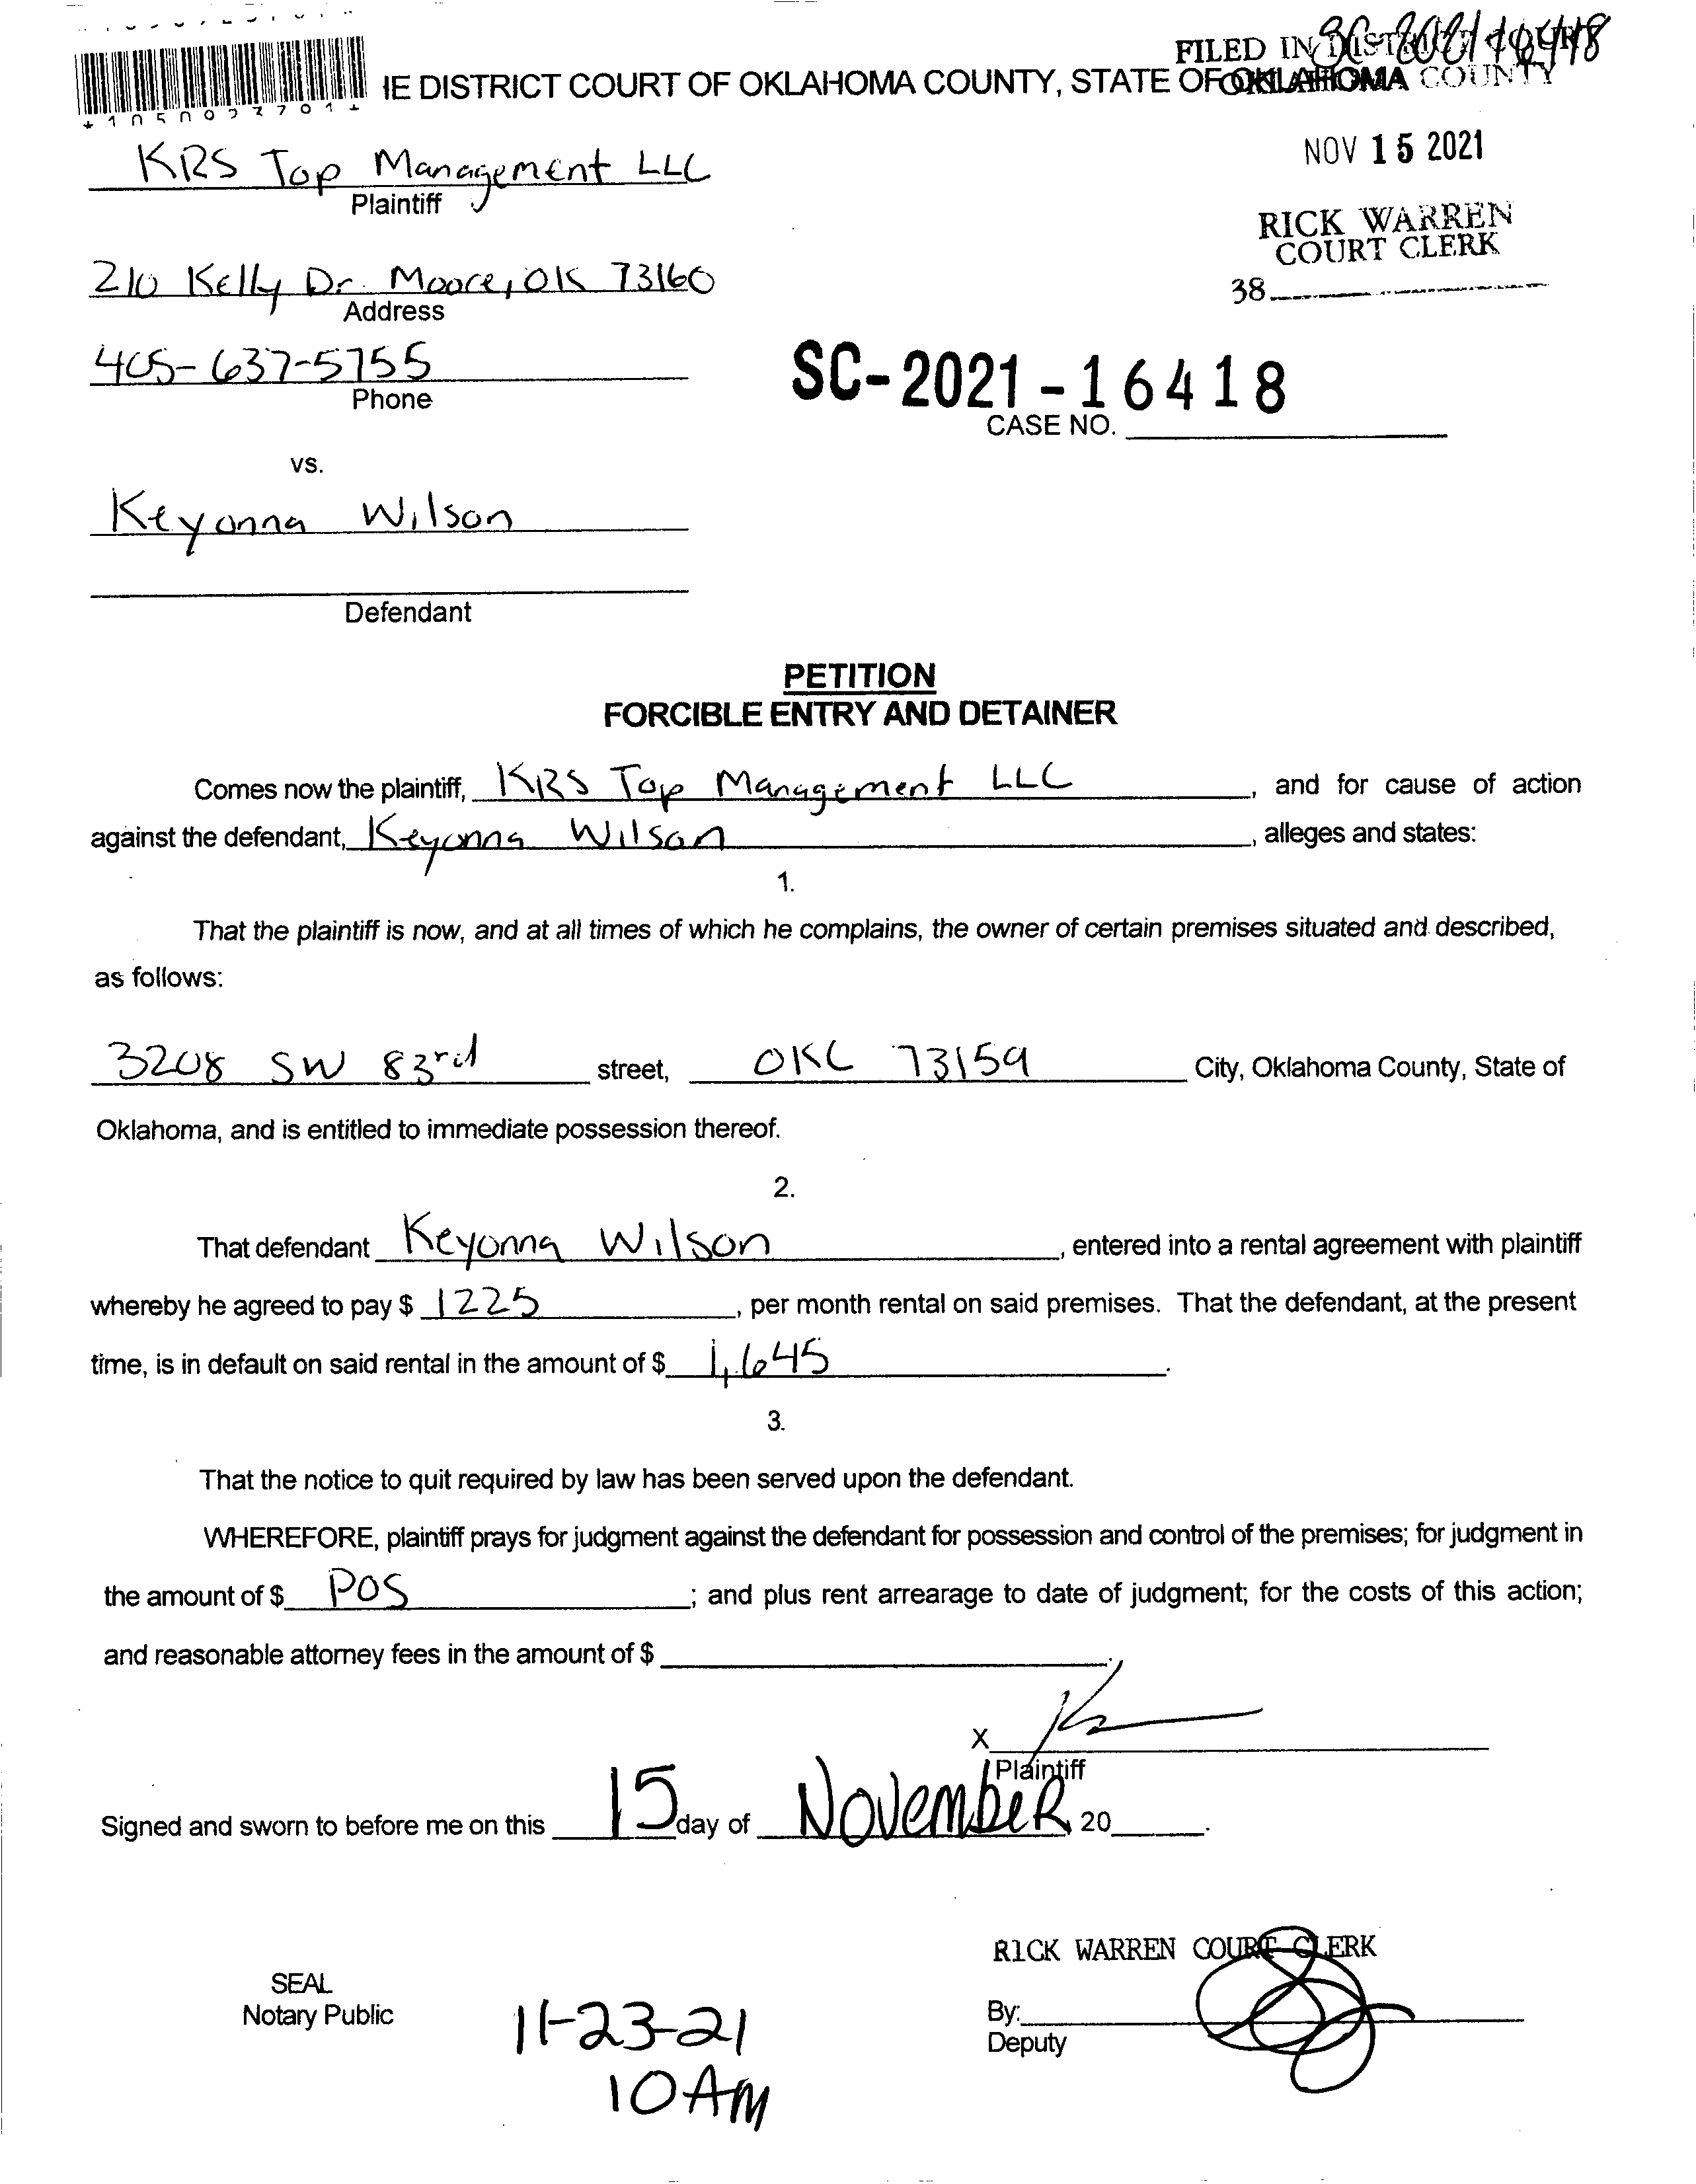 SC-2021-16418
FILED IN DISTRICT COURT
OKLAHOMA COUNTY
IE DISTRICT COURT OF OKLAHOMA COUNTY, STATE OF OKLAHOMA
NOV 15 2021
KRS Top Management LLC
Plaintiff
RICK WARREN
COURT CLERK
38
210 Kelly Dr. Moore, OK 73160
Address
405-637-5755
Phone
SC-2021-16418
CASE NO.
vs.
Keyonna Wilson
Defendant
PETITION
FORCIBLE ENTRY AND DETAINER
Comes now the plaintiff, KRS Top Management LLC, and for cause of action
against the defendant, Keyonna Wilson, alleges and states:
1.
That the plaintiff is now, and at all times of which he complains, the owner of certain premises situated and described,
as follows:
3208 SW 83rd street, OKC 73159 City, Oklahoma County, State of
Oklahoma, and is entitled to immediate possession thereof.
2.
That defendant Keyonna Wilson, entered into a rental agreement with plaintiff
whereby he agreed to pay $ 1225, per month rental on said premises. That the defendant, at the present
time, is in default on said rental in the amount of $ 1,645.
3.
That the notice to quit required by law has been served upon the defendant.
WHEREFORE, plaintiff prays for judgment against the defendant for possession and control of the premises; for judgment in
the amount of $ POS; and plus rent arrearage to date of judgment; for the costs of this action;
and reasonable attorney fees in the amount of $
X
Plaintiff
Signed and sworn to before me on this 15 day of NovembeR 20.
RICK WARREN COURT CLERK
SEAL
Notary Public
By:
Deputy
11-23-21
10AM